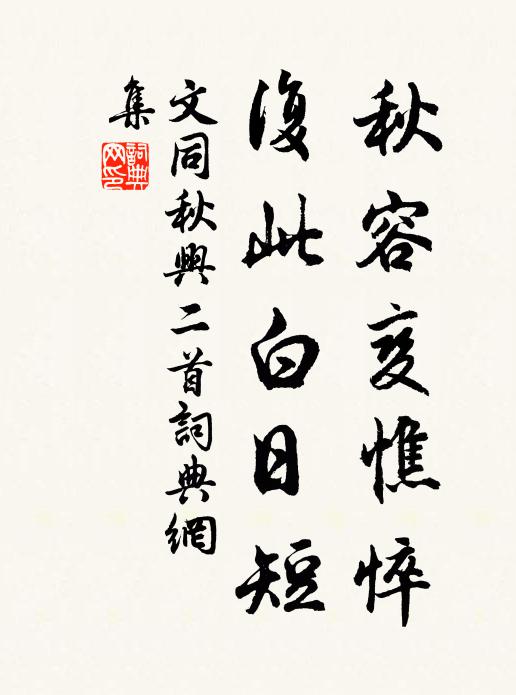 秋容变憔悴
復此白日短
文同秋興二首詞典網
集
詞典
网印